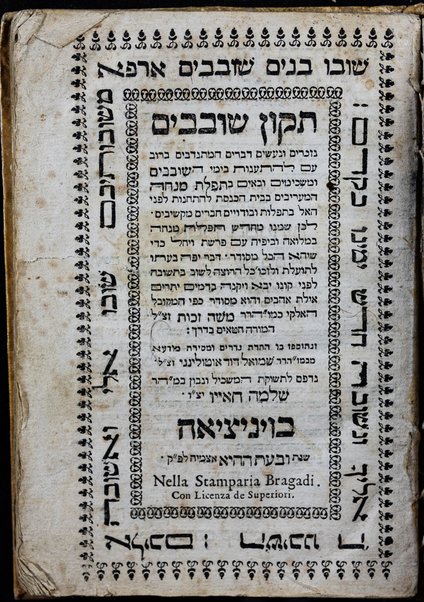 שובו בנים שובבים ארפא
משובותיכם שובו אלי ואשובה
אליכם : השיבנו ה'
אליך ונשובה חדש ימינו כקדם :
תקון שובבים
גוזרים ונעשים דברים המתנדבים ברוב
עם להתענות בימי השובבים
ומשכימים ובאים בתפלת מנחה
המעריבים בבית הכנסת להתחנות לפני
האל בתפלות ובודויים חברים מקשיבים ·
לכן שמנו מחדש תפלת מנחה
במלואה וביפיה עם פרשת ויחל כדי
שיהא הכל מסודר · דבר יפה בעתו
לתועלת ולזכו' כל הרוצה לשוב בתשובה
לפני קונו יבא ויקנה בדמים יתרים
אילת אהבים והוא מסודר כפי המקובל
האלקי כמו"הרר משה זכות זצ"ל
המורה חטאים בדרך :
ונתוספו בו התרת נדרים ומסירת מודעא
מכמו"הרר שמואל דוד אוטולינגי זצ"ל ·
נדפס לתשוקת המשכיל ונבון כמ"הר
שלמה חאיין יצ"ו
בויניציאה
שנת ובעת ההיא אצמיח לפ"ק ·
Nella Stamparia Bragadi.
Con Licenza de Superiori.